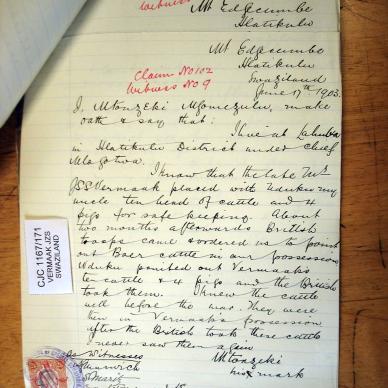 Witness
Mt Edgecumbe
Hlatikulu
Mt Edgecumbe
Hlatikulu
Swaziland
June 17th 1903.
Claim No 102
Witness No 9
I, Mtonzeki Mgomezulu, make
oath & say that:
I live at
in Hlatikulu District under chief
Magotwa.
I know that the late Mr
JSS Vermaak placed with my
uncle ten head of cattle and 4
pigs for safe keeping. About
two months afterwards British
troops came & ordered us to point
out Boer cattle in our possession
pointed out Vermaaks
ten cattle & 4 pigs and the British
took them. I knew the cattle
well before the war. They were
then in Vermaak's possession
after the British took these cattle
I never saw them again
As Witnesses
Mtonzeki
his x mark
CJC 1167/171
VERMAAK JZS
SWAZILAND